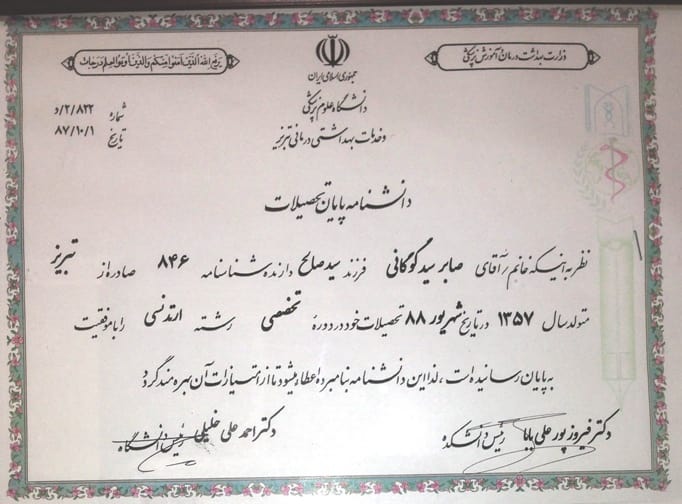 وزارت بهداشت درمان و آموزش پزشکی
یرفع الله الذین آمنوا منکم والذین اوتوا العلم درجات
جمهوری اسلامی ایران
دانشگاه علوم پزشکی
و خدمات بهداشتی درمانی تبریز
شماره ۲/۸۲۲/د
تاریخ ۸۷/۱۰/۱
دانشنامه پایان تحصیلات
نظر به اینکه خانم / آقای صابر سید گوگانی فرزند سید صالح دارنده شناسنامه ۸۴۶ صادره از تبریز
متولد سال ۱۳۵۷ در تاریخ شهریور ۸۸ تحصیلات خود در دوره تخصصی رشته ارتدنسی را با موفقیت
به پایان رسانیده است ، لذا این دانشنامه بنامبرده اعطاء میشود تا از امتیازات آن بهره مند گردد
دکتر فیروز پور علی بابا رئیس دانشکده
دکتر احمد علی خلیلی رئیس دانشگاه